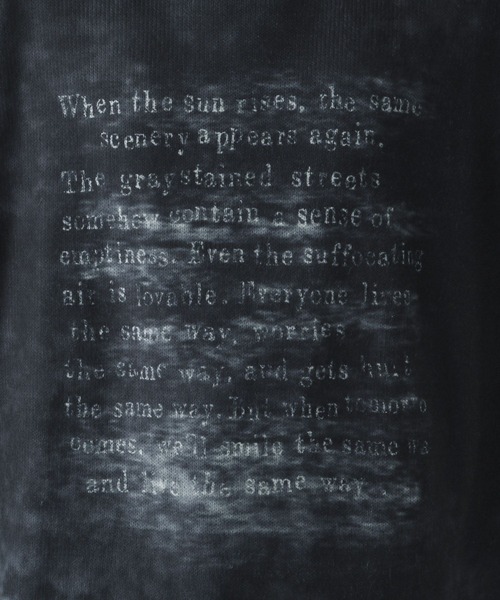 When the sun rises, the same
scenery appears again.
The gray stained streets
somehow contain a sense of
emptiness. Even the suffocating
air is lovable. Everyone lives
the same way, worries
the same way, and gets hurt
the same way. But when tomorro
comes, we'll smile the same wa
and live the same way